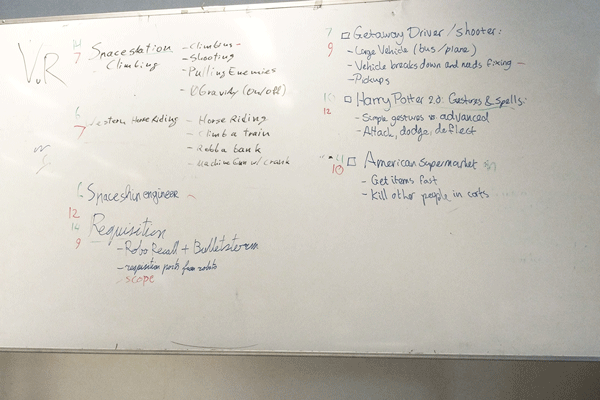 VR
14
7
Spacestation
Climbing
- Climbing -
- Shooting
- Pulling Enemies
- 0Gravity (on/off)
6
7
Western Horse Riding
- Horse Riding
- Climb a train
- Rob a bank
- Machine Gun w/ crank
6 Spaceship engineer
12
14
9
Requisition
- Robo Recall + Bulletstorm
- requisition parts from robots
- scope
7
9
Getaway Driver / shooter:
- Large Vehicle (bus/plane)
- Vehicle breaks down and needs fixing -
- Pickups
12
Harry Potter 2.0: Gestures & Spells:
- Simple gestures vs advanced
- Attack, dodge, deflect
10
American Supermarket
- Get items fast
- Kill other people in carts